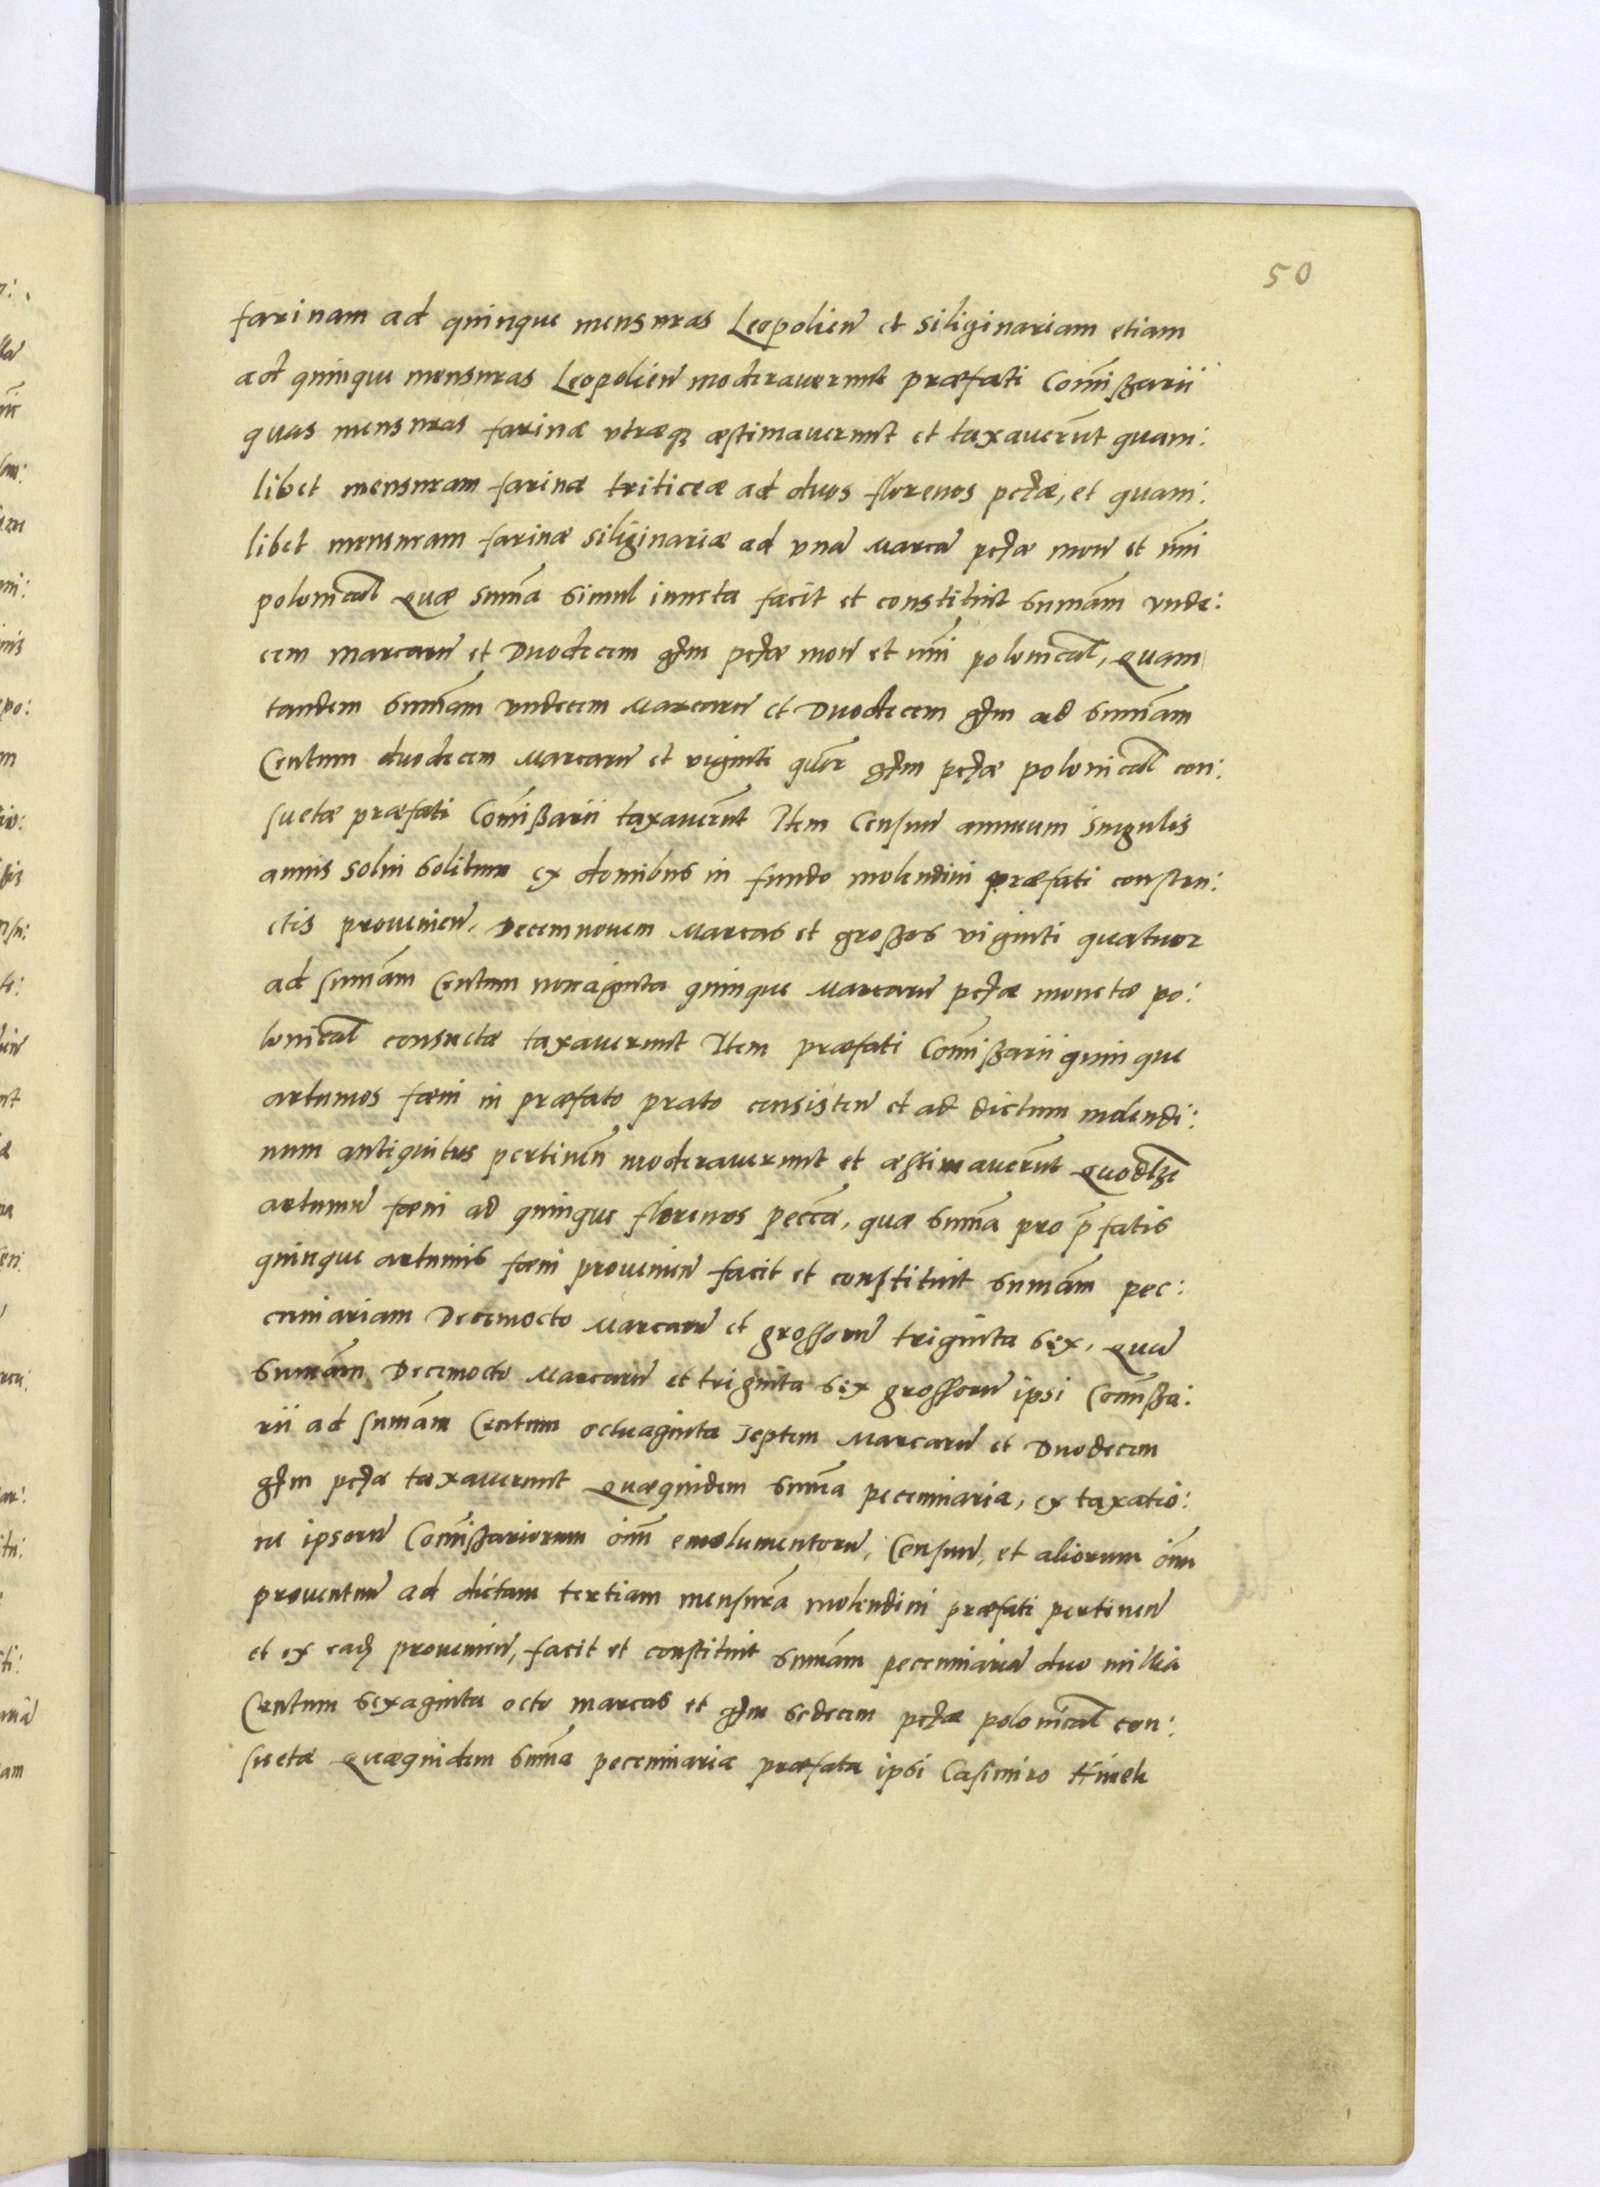 50
farinam ad quinque mensuras Leopolien̄ et siliginariam etiam
ad quinque mensuras Leopolien̄ moderaverunt præfati Com̄ißarii
quas mensuras farinæ vtræq; æstimaverunt et taxaverūt quam:
libet mensuram farinæ triticeæ ad duos florenos pctæ, et quam:
libet mensuram farinæ siliginariæ ad vnā Marcā pctæ mon̄ et nr̄i
polonical̄ Quæ sum̄a simul iuncta facit et constituit Sum̄am vnde:
cem Marcarū et Duodecem gr̄m pctæ mon̄ et nr̄i polonical̄, Quam
tandem Sum̄am vndecem Marcarū et Duodecem gr̄m ad Sum̄am
Centum duodecem Marcarū et viginti qu̅or gr̄m pctæ polonical̄ con:
suetæ præfati Com̄ißarii taxaverūt Item Censum annuum singulis
annis solui solitum ex domibus in fundo molendini præfati constru:
ctis provenien̄. Decemnovem Marcas et großos viginti quatuor
ad sum̄am Centum nonaginta quinque Marcarū pctæ monetæ po:
lonical̄ consuetæ taxaverunt Item præfati Com̄ißarii quinque
artumos fœni in præfato prato consisten̄ et ad dictum molendi:
num antiquitus pertinen̄ moderaverunt et æstimaverūt Quodlȝt
artumū fœni ad quinque florenos pecc̄æ, quæ Sum̄a pro p̄fatis
quinque artumis fœni provenien̄ facit et constituit Sum̄am pec:
cuniariam Decemocto Marcarū et grossorū triginta sex, Quā
Sum̄am Decemocto Marcarū et triginta sex grossorū ipsi Com̄ißa:
rii ad sum̄am Centum octuaginta septem Marcarū et Duodecem
gr̄m pctæ taxaverunt Quæquidem Sum̄a peccuniaria, ex taxatio:
ne ipsorū Com̄ißariorum om̄ emolumentorū, Censuū, et aliorum om̄
proventuū ad dictam tertiam mensurā molendini præfati pertinen̄
et ex eadȝ provenien̄, facit et constituit Sum̄am peccuniariā duo millia
Centum sexaginta octo marcas et gr̄m sedecem pctæ polonical̄ con:
suetæ Quæquidem Sum̄a peccuniaria præfata ipsi Casimiro